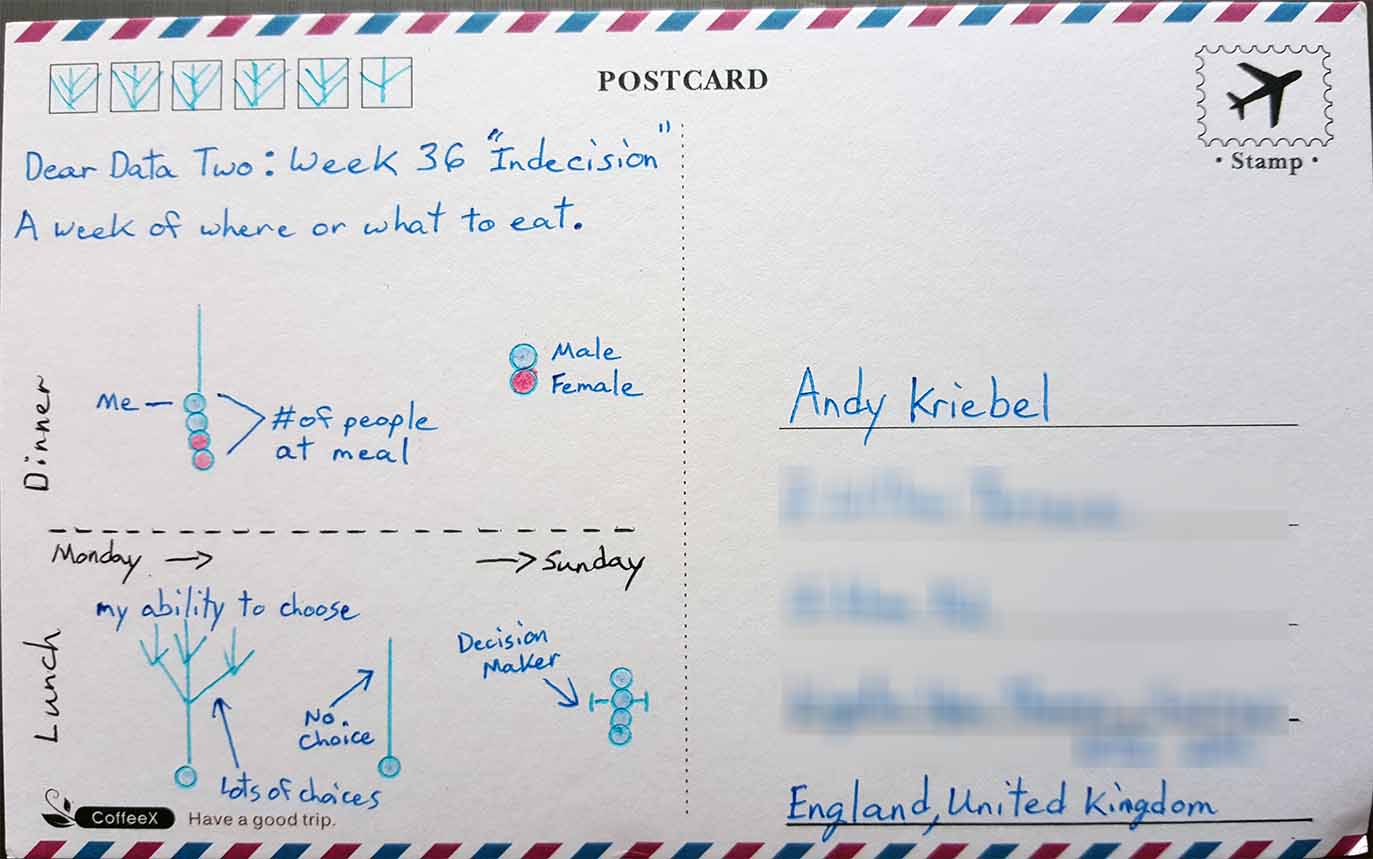 POSTCARD
• Stamp •
Dear Data Two: Week 36 "Indecision"
A week of where or what to eat.
Dinner
Me
# of people
at meal
Male
Female
Monday → → Sunday
Lunch
my ability to choose
No.
Choice
Lots of choices
Decision
Maker
CoffeeX Have a good trip.
Andy Kriebel
England, United Kingdom